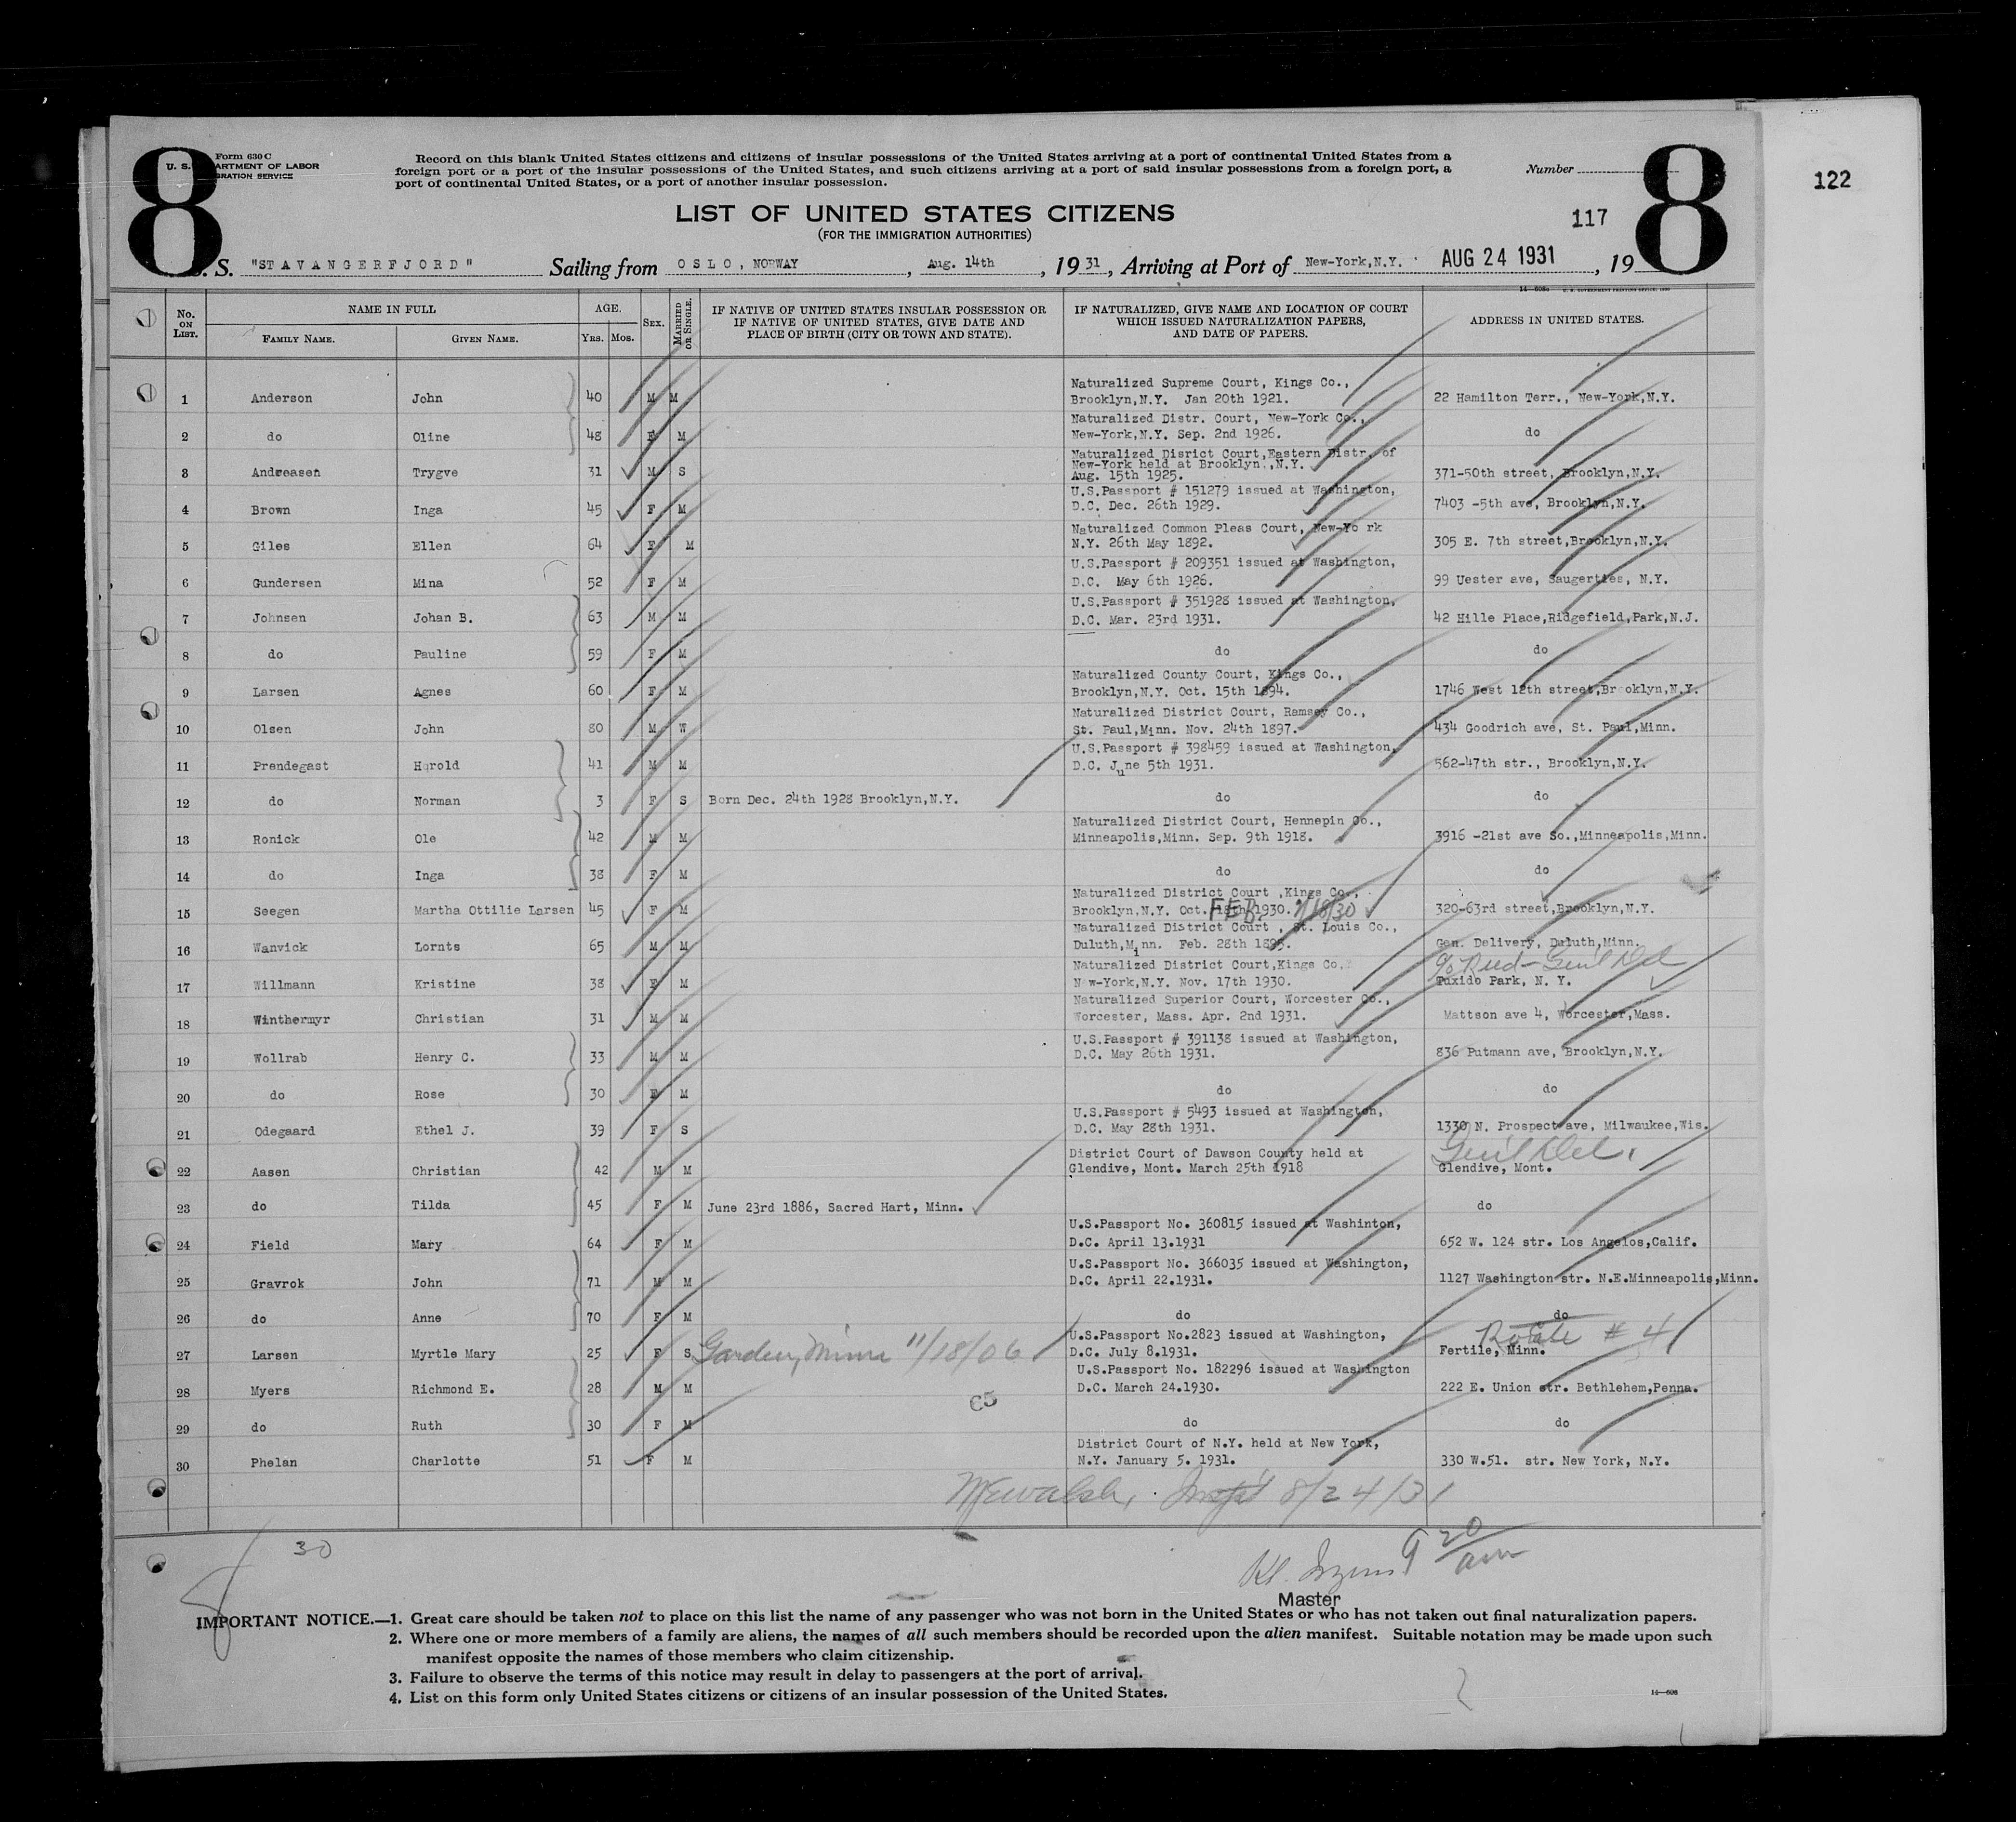 8 8
Form 630 C
U. S. DEPARTMENT OF LABOR
IMMIGRATION SERVICE
Record on this blank United States citizens and citizens of insular possessions of the United States arriving at a port of continental United States from a
foreign port or a port of the insular possessions of the United States, and such citizens arriving at a port of said insular possessions from a foreign port, a
port of continental United States, or a port of another insular possession.
Number
122
LIST OF UNITED STATES CITIZENS
117
(FOR THE IMMIGRATION AUTHORITIES)
S. S. "STAVANGERFJORD" Sailing from OSLO, NORWAY, Aug. 14th, 1931, Arriving at Port of New-York,N.Y. AUG 24 1931, 19
No. ON LIST. NAME IN FULL FAMILY NAME. GIVEN NAME. AGE. YRS. MOS. SEX. MARRIED OR SINGLE. IF NATIVE OF UNITED STATES INSULAR POSSESSION OR IF NATIVE OF UNITED STATES, GIVE DATE AND PLACE OF BIRTH (CITY OR TOWN AND STATE). IF NATURALIZED, GIVE NAME AND LOCATION OF COURT WHICH ISSUED NATURALIZATION PAPERS, AND DATE OF PAPERS. ADDRESS IN UNITED STATES.
Naturalized Supreme Court, Kings Co.,
1 Anderson John 40 M M Brooklyn,N.Y. Jan 20th 1921. 22 Hamilton Terr., New-York,N.Y.
Naturalized Distr. Court, New-York Co.,
2 do Oline 48 F M New-York,N.Y. Sep. 2nd 1926. do
Naturalized Disrict Court,Eastern Distr. of
New-York held at Brooklyn.,N.Y.
3 Andreasen Trygve 31 M S Aug. 15th 1925. 371-50th street, Brooklyn,N.Y.
U.S.Passport # 151279 issued at Washington,
4 Brown Inga 45 F M D.C. Dec. 26th 1929. 7403 -5th ave, Brooklyn,N.Y.
Naturalized Common Pleas Court, New-Yo rk
5 Giles Ellen 64 F M N.Y. 26th May 1892. 305 E. 7th street,Brooklyn,N.Y.
U.S.Passport # 209351 issued at Washington,
6 Gundersen Mina 52 F M D.C. May 6th 1926. 99 Uester ave, Saugerties, N.Y.
U.S.Passport # 351928 issued at Washington,
7 Johnsen Johan B. 63 M M D.C. Mar. 23rd 1931. 42 Hille Place,Ridgefield,Park,N.J.
8 do Pauline 59 F M do do
Naturalized County Court, Kings Co.,
9 Larsen Agnes 60 F M Brooklyn,N.Y. Oct. 15th 1894. 1746 West 12th street,Brooklyn,N.Y.
Naturalized District Court, Ramsey Co.,
10 Olsen John 80 M W St. Paul,Minn. Nov. 24th 1897. 434 Goodrich ave, St. Paul,Minn.
U.S.Passport # 398459 issued at Washington,
11 Prendegast Harold 41 M M D.C. June 5th 1931. 562-47th str., Brooklyn,N.Y.
12 do Norman 3 F S Born Dec. 24th 1928 Brooklyn,N.Y. do do
Naturalized District Court, Hennepin Co.,
13 Ronick Ole 42 M M Minneapolis,Minn. Sep. 9th 1918. 3916 -21st ave So.,Minneapolis,Minn.
14 do Inga 38 F M do do
Naturalized District Court ,Kings Co.,
15 Seegen Martha Ottilie Larsen 45 F M Brooklyn,N.Y. Oct. 1930. FEB. 320-63rd street,Brooklyn,N.Y.
Naturalized District Court , St. Louis Co.,
16 Wanvick Lornts 65 M M Duluth,Minn. Feb. 28th 1895. Gen. Delivery, Duluth,Minn.
Naturalized District Court,Kings Co.
17 Willmann Kristine 38 F M New-York,N.Y. Nov. 17th 1930. Tuxido Park, N. Y.
Naturalized Superior Court, Worcester Co.,
18 Winthermyr Christian 31 M M Worcester, Mass. Apr. 2nd 1931. Mattson ave 4, Worcester,Mass.
U.S.Passport # 391138 issued at Washington,
19 Wollrab Henry C. 33 M M D.C. May 26th 1931. 836 Putmann ave, Brooklyn,N.Y.
20 do Rose 30 F M do do
U.S.Passport # 5493 issued at Washington,
21 Odegaard Ethel J. 39 F S D.C. May 28th 1931. 1330 N. Prospect ave, Milwaukee,Wis.
District Court of Dawson County held at Gen'l Del.
22 Aasen Christian 42 M M Glendive, Mont. March 25th 1918 Glendive, Mont.
23 do Tilda 45 F M June 23rd 1886, Sacred Hart, Minn. do
U.S.Passport No. 360815 issued at Washinton,
24 Field Mary 64 F M D.C. April 13.1931 652 W. 124 str. Los Angelos,Calif.
U.S.Passport No. 366035 issued at Washington,
25 Gravrok John 71 M M D.C. April 22.1931. 1127 Washington str. N.E.Minneapolis,Minn.
26 do Anne 70 F M do do
U.S.Passport No.2823 issued at Washington, Route # 4
27 Larsen Myrtle Mary 25 F S Garden, Minn 11/18/06 D.C. July 8.1931. Fertile, Minn.
U.S.Passport No. 182296 issued at Washington
28 Myers Richmond E. 28 M M D.C. March 24.1930. 222 E. Union str. Bethlehem,Penna.
29 do Ruth 30 F M do do
District Court of N.Y. held at New York,
30 Phelan Charlotte 51 F M N.Y. January 5. 1931. 330 W.51. str. New York, N.Y.
8/24/31
30
9 20 am
Master
IMPORTANT NOTICE.—1. Great care should be taken not to place on this list the name of any passenger who was not born in the United States or who has not taken out final naturalization papers.
2. Where one or more members of a family are aliens, the names of all such members should be recorded upon the alien manifest. Suitable notation may be made upon such
manifest opposite the names of those members who claim citizenship.
3. Failure to observe the terms of this notice may result in delay to passengers at the port of arrival.
4. List on this form only United States citizens or citizens of an insular possession of the United States.
14—608